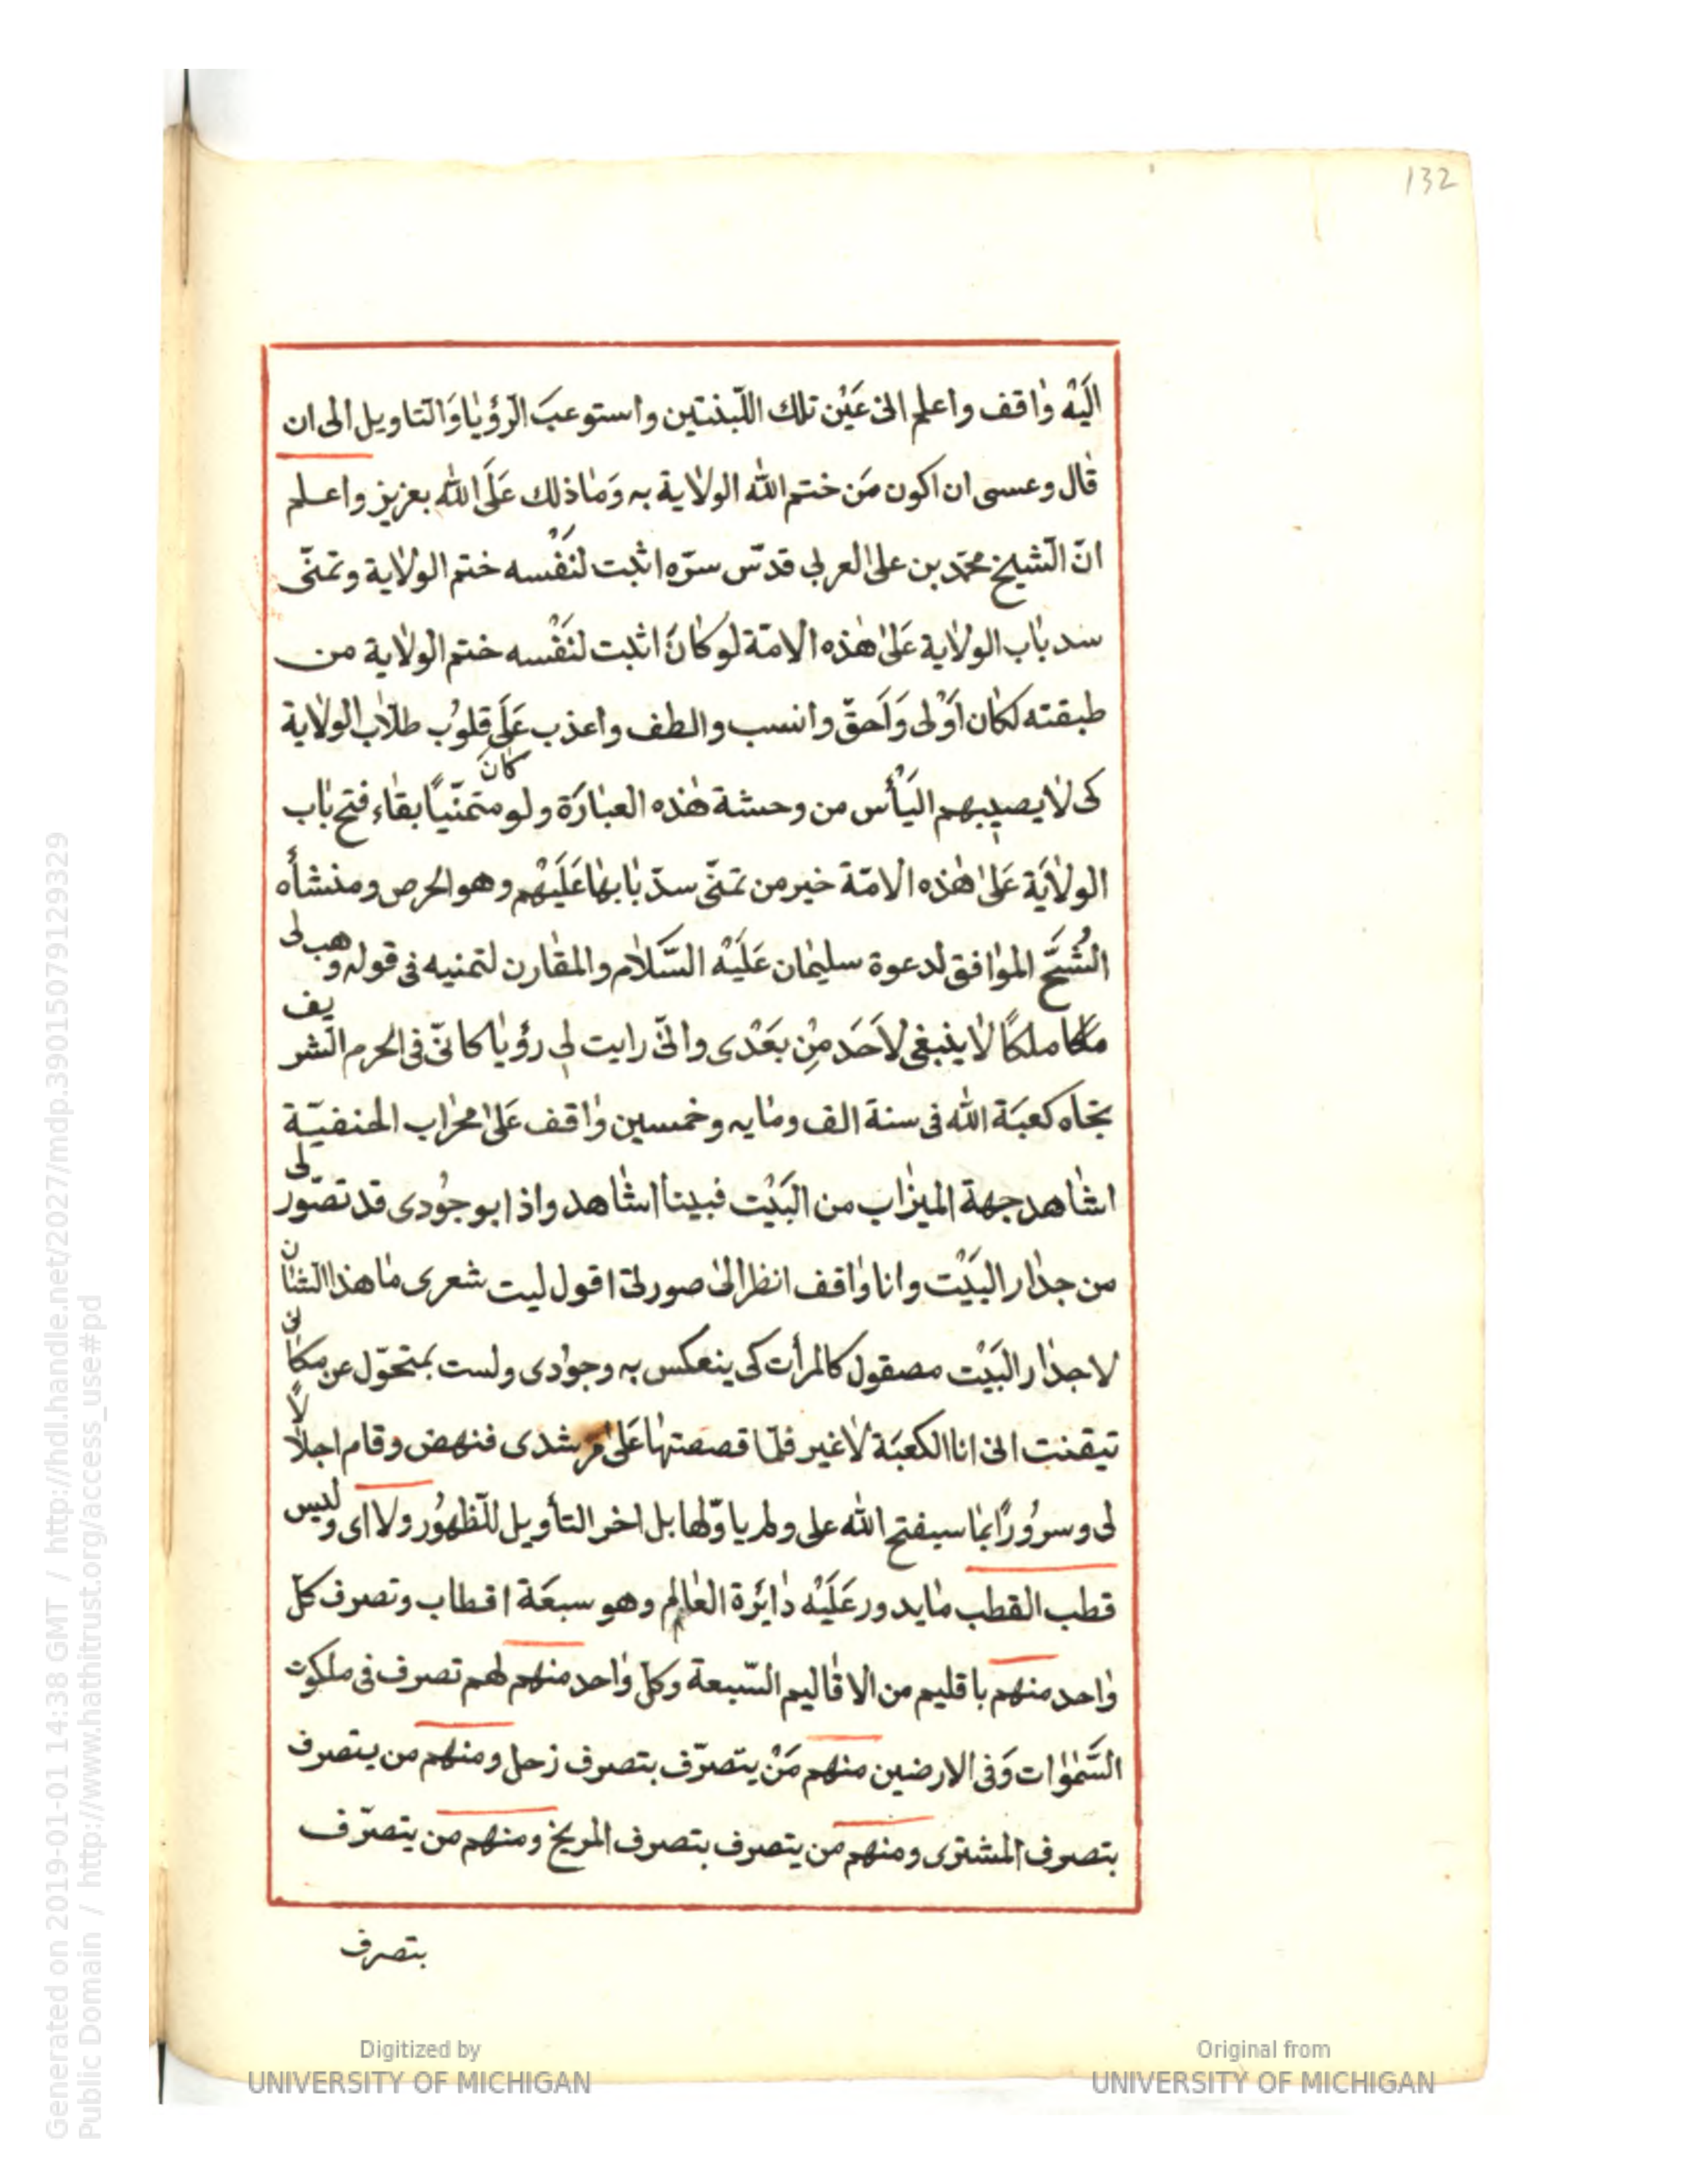 132
اليْه وٰاقف واعلم انى عَيْن تلك اللّبنتين واستوعبَ الرّؤيٰا وَالتاويل الى ان
قٰال وعسى ان اكون مَن ختم الله الولٰاية به وَمٰا ذلك عَلَى الله بعزيز واعلم
انّ الشيخ محمّد بن على العربى قدّس سرّه اثبت لنَفْسه ختم الولٰاية وتمنّى
سد بٰاب الولٰاية عَلىٰ هٰذه الامّة لو كٰانَ اثبت لنَفْسه ختم الولٰاية من
طبقته لكٰان اَوْلى وَاَحقّ وانسب والطف واعذب عَلَى قلوُب طلّاب الولٰاية
كى لٰا يصيبهم اليَأْس من وحشة هٰذه العبٰارَة ولو كانَ متمنّيًا بقٰاء فتح بٰاب
الولٰايَة عَلىٰ هٰذه الامّة خير من تمنّى سدّ بٰابهٰا عَلَيْهم وهو الحرص ومنشأه
الشُحَّ الموٰافق لدعوة سليمٰان عَلَيْه السَّلٰام والمقٰارن لتمنيه فى قوله وهب لى
ملكا ملكًا لٰا ينبغى لاَحَد مِنْ بَعْدى وانّى رايت لى رؤيٰا كانّى فى الحرم الشريف
تجٰاه كعبَة الله فى سنة الف ومٰايه وخمسين وٰاقف عَلىٰ محرٰاب الحنفيّة
اشٰاهد جهة الميزٰاب من البَيْت فبينا اشٰاهد واذا بوجوُدى قد تصّور لى
من جدٰار البَيْت وانا وٰاقف انظر الىٰ صورتى اقول ليت شعرى مٰا هذا الشٰان
لا جدٰار البَيْت مصقول كالمرأت كى ينعكس به وجوٰدى ولست بمتحوّل عن مكٰانى
تيقنت انى انا الكعبَة لٰا غير فلمّا قصصتهٰا عَلىٰ مرشدى فنهض وقام اجلالًا
لى وسروُرًا بمٰا سيفتح الله على ولم ياوّلها بل اخر التأويل للظهوُر ولا اى وليس
قطب القطب مٰا يدور عَلَيْه دٰايَرة العٰالم وهو سبعَة اقطاب وتصرف كلّ
وٰاحد منهم باقليم من الاقٰاليم السّبعة وكلّ وٰاحد منهم لهم تصرف فى ملكوت
السَّمٰوٰات وَفى الارضين منهم مَنْ يتصرّف بتصرف زحل ومنهم من يتصرف
بتصرف المشترى ومنهم من يتصرف بتصرف المريخ ومنهم من يتصرّف
بتصرف
Digitized by
UNIVERSITY OF MICHIGAN
Original from
UNIVERSITY OF MICHIGAN
Generated on 2019-01-01 14:38 GMT / http://hdl.handle.net/2027/mdp.39015079129329
Public Domain / http://www.hathitrust.org/access_use#pd